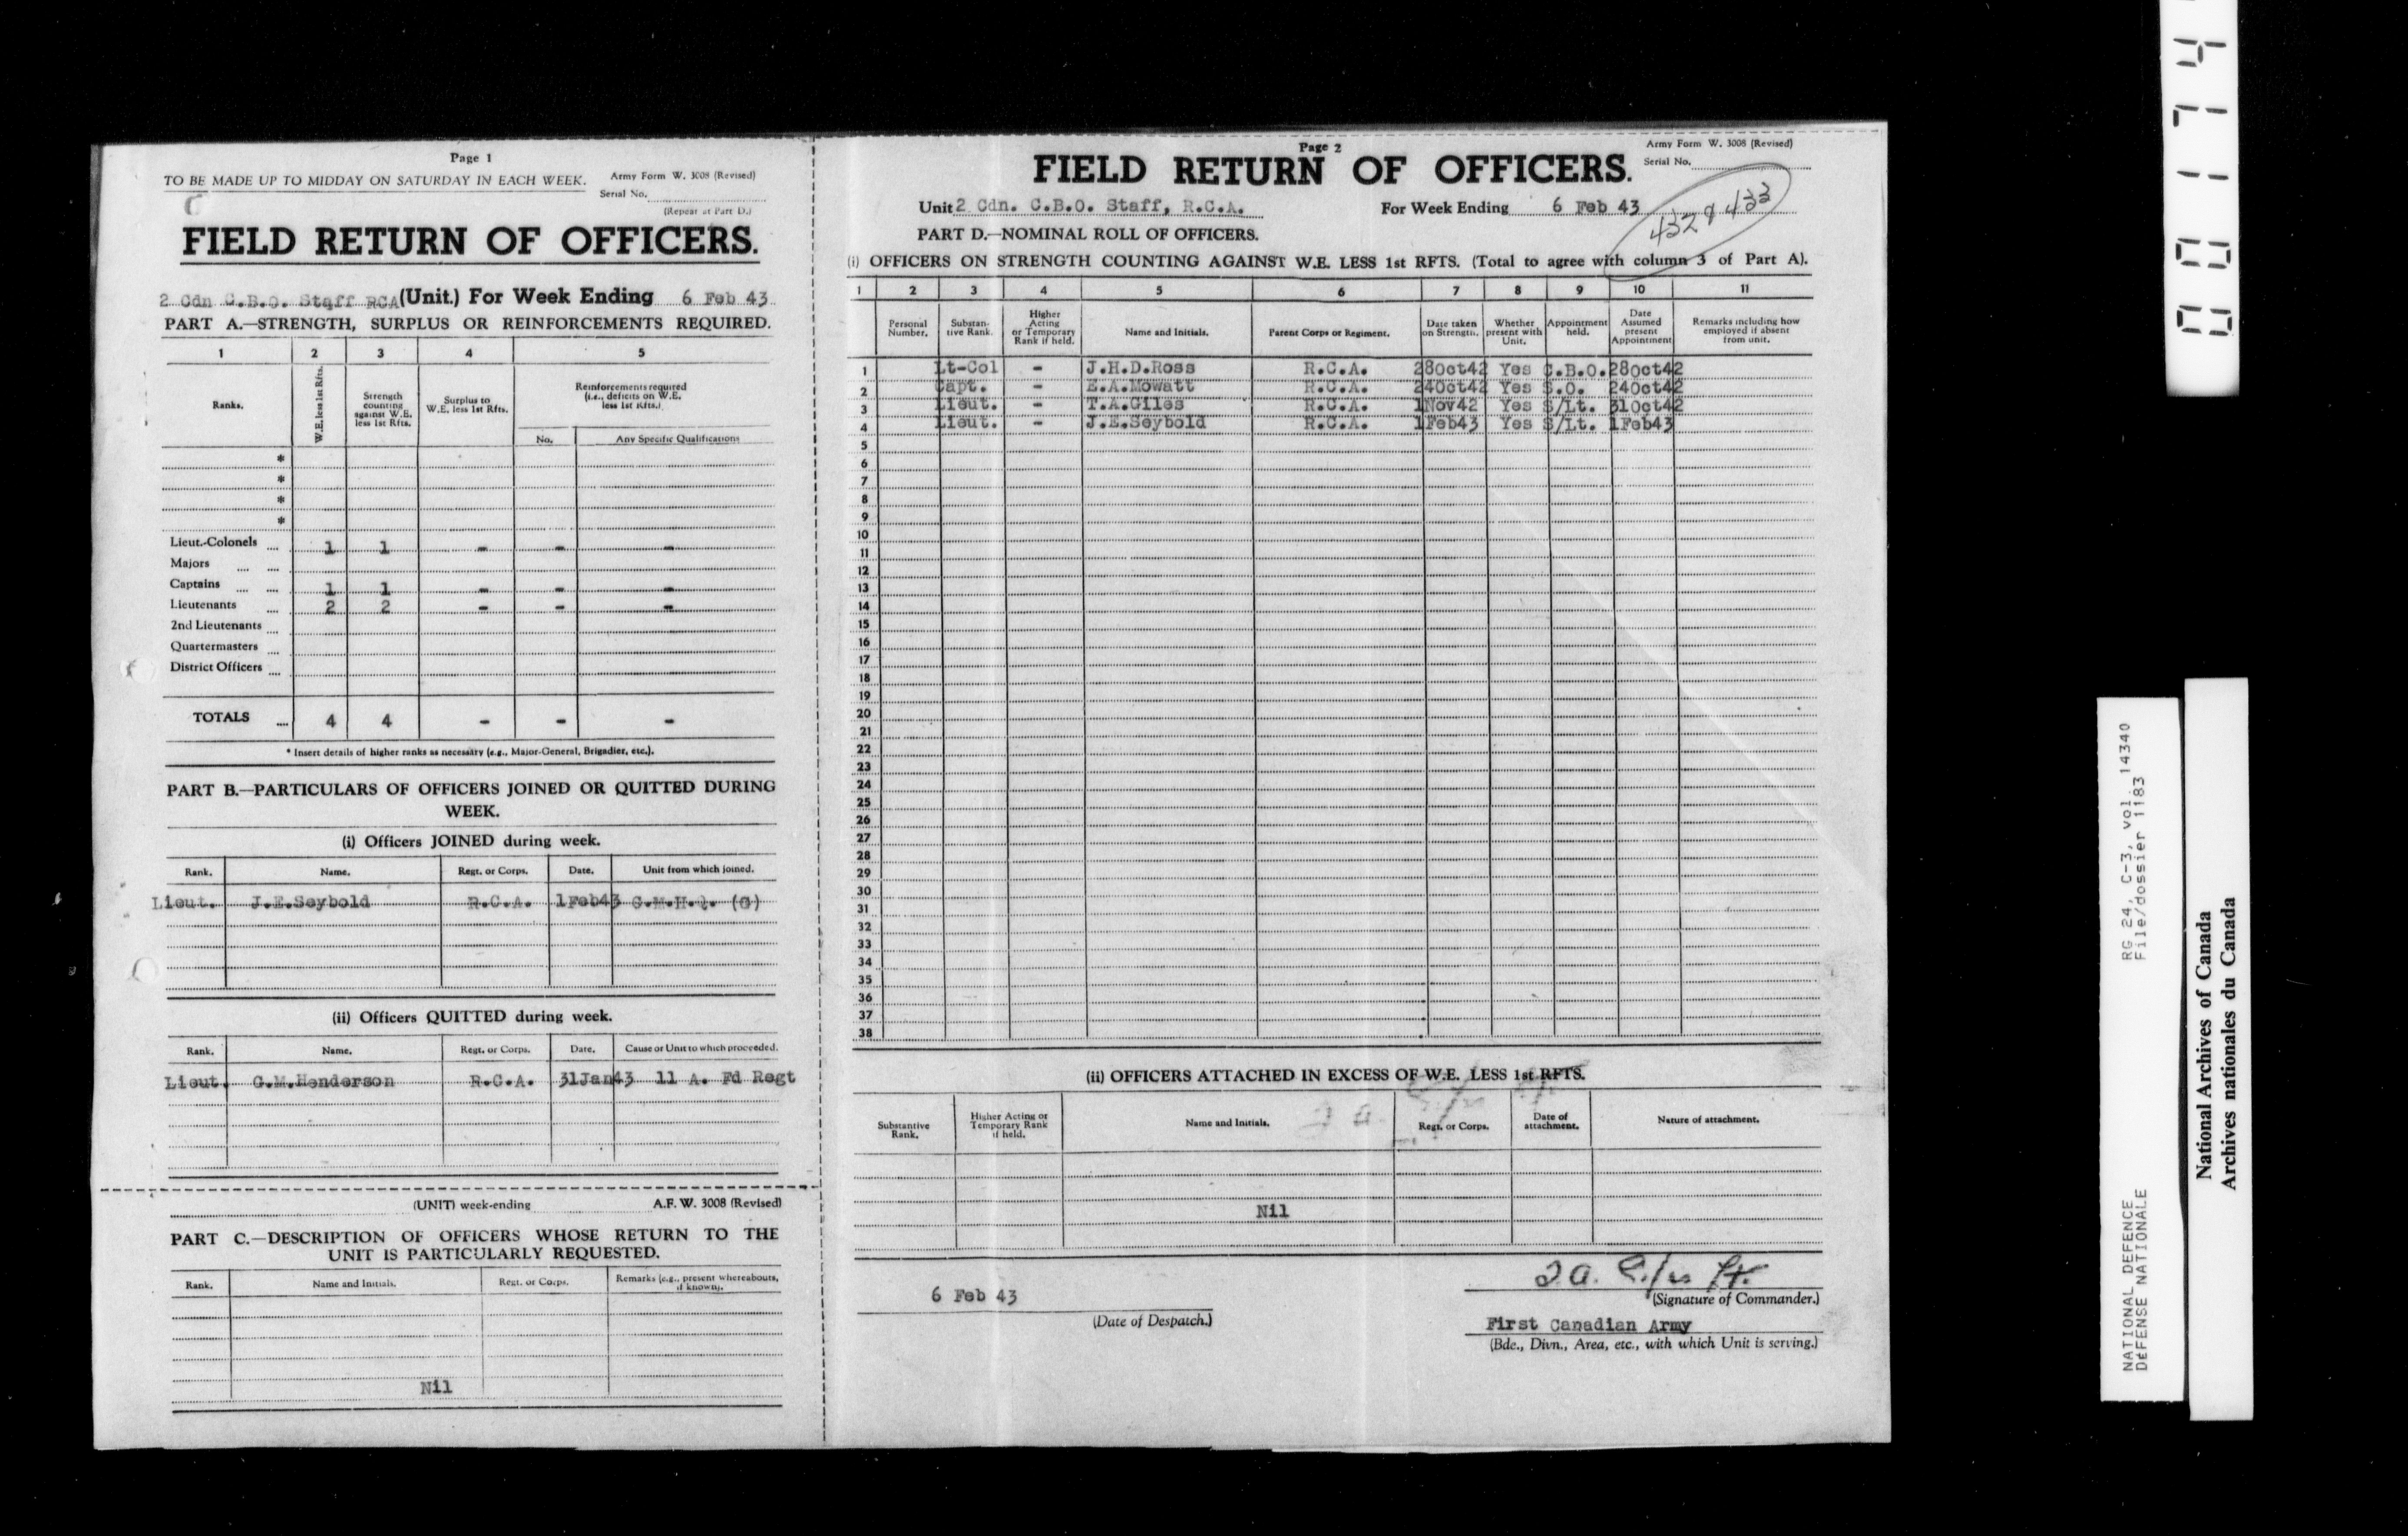 Page 1
TO BE MADE UP TO MIDDAY ON SATURDAY IN EACH WEEK.
Army Form W. 3008 (Revised)
Serial No.
(Repeat at Part D.)
FIELD RETURN OF OFFICERS.
2 Cdn C.B.O. Staff RCA (Unit.) For Week Ending 6 Feb 43
PART A.—STRENGTH, SURPLUS OR REINFORCEMENTS REQUIRED.
1 2 3 4 5
Ranks. W.E. less 1st Rfts. Strength counting against W.E. less 1st Rfts. Surplus to W.E. less 1st Rfts. Reinforcements required (i.e., deficits on W.E. less 1st Rfts.)
No. Any Specific Qualifications
*
*
*
*
Lieut.-Colonels .... 1 1 - - -
Majors .... ....
Captains .... .... 1 1 - - -
Lieutenants .... 2 2 - - -
2nd Lieutenants ....
Quartermasters ....
District Officers ....
TOTALS .... 4 4 - - -
* Insert details of higher ranks as necessary (e.g., Major-General, Brigadier, etc.).
PART B.—PARTICULARS OF OFFICERS JOINED OR QUITTED DURING
WEEK.
(i) Officers JOINED during week.
Rank. Name. Regt. or Corps. Date. Unit from which joined.
Lieut. J.E.Seybold R.C.A. 1Feb43
(ii) Officers QUITTED during week.
Rank. Name. Regt. or Corps. Date. Cause or Unit to which proceeded.
Lieut. G.M.Henderson R.C.A. 31Jan43 11 A. Fd Regt
(UNIT) week-ending A.F. W. 3008 (Revised)
PART C.—DESCRIPTION OF OFFICERS WHOSE RETURN TO THE
UNIT IS PARTICULARLY REQUESTED.
Rank. Name and Initials. Regt. or Corps. Remarks (e.g., present whereabouts, if known).
Nil
Page 2
Army Form W. 3008 (Revised)
FIELD RETURN OF OFFICERS.
Serial No.
Unit 2 Cdn. C.B.O. Staff, R.C.A. For Week Ending 6 Feb 43
432 & 433
PART D.—NOMINAL ROLL OF OFFICERS.
(i) OFFICERS ON STRENGTH COUNTING AGAINST W.E. LESS 1st RFTS. (Total to agree with column 3 of Part A).
1 2 3 4 5 6 7 8 9 10 11
Personal Number. Substantive Rank. Higher Acting or Temporary Rank if held. Name and Initials. Parent Corps or Regiment. Date taken on Strength. Whether present with Unit. Appointment held. Date Assumed present Appointment Remarks including how employed if absent from unit.
1 Lt-Col - J.H.D.Ross R.C.A. 28Oct42 Yes C.B.O. 28Oct42
2 Capt. - E.A.Mowatt R.C.A. 24Oct42 Yes S.O. 24Oct42
3 Lieut. - T.A.Giles R.C.A. 1Nov42 Yes S/Lt. 31Oct42
4 Lieut. - J.E.Seybold R.C.A. 1Feb43 Yes S/Lt. 1Feb43
5
6
7
8
9
10
11
12
13
14
15
16
17
18
19
20
21
22
23
24
25
26
27
28
29
30
31
32
33
34
35
36
37
38
(ii) OFFICERS ATTACHED IN EXCESS OF W.E. LESS 1st RFTS.
Substantive Rank. Higher Acting or Temporary Rank if held. Name and Initials. Regt. or Corps. Date of attachment. Nature of attachment.
Nil
T.A. Giles Lt.
6 Feb 43
(Signature of Commander.)
(Date of Despatch.)
First Canadian Army
(Bde., Divn., Area, etc., with which Unit is serving.)
NATIONAL DEFENCE RG 24, C-3, vol. 14340
DÉFENSE NATIONALE File/dossier 1183
National Archives of Canada
Archives nationales du Canada